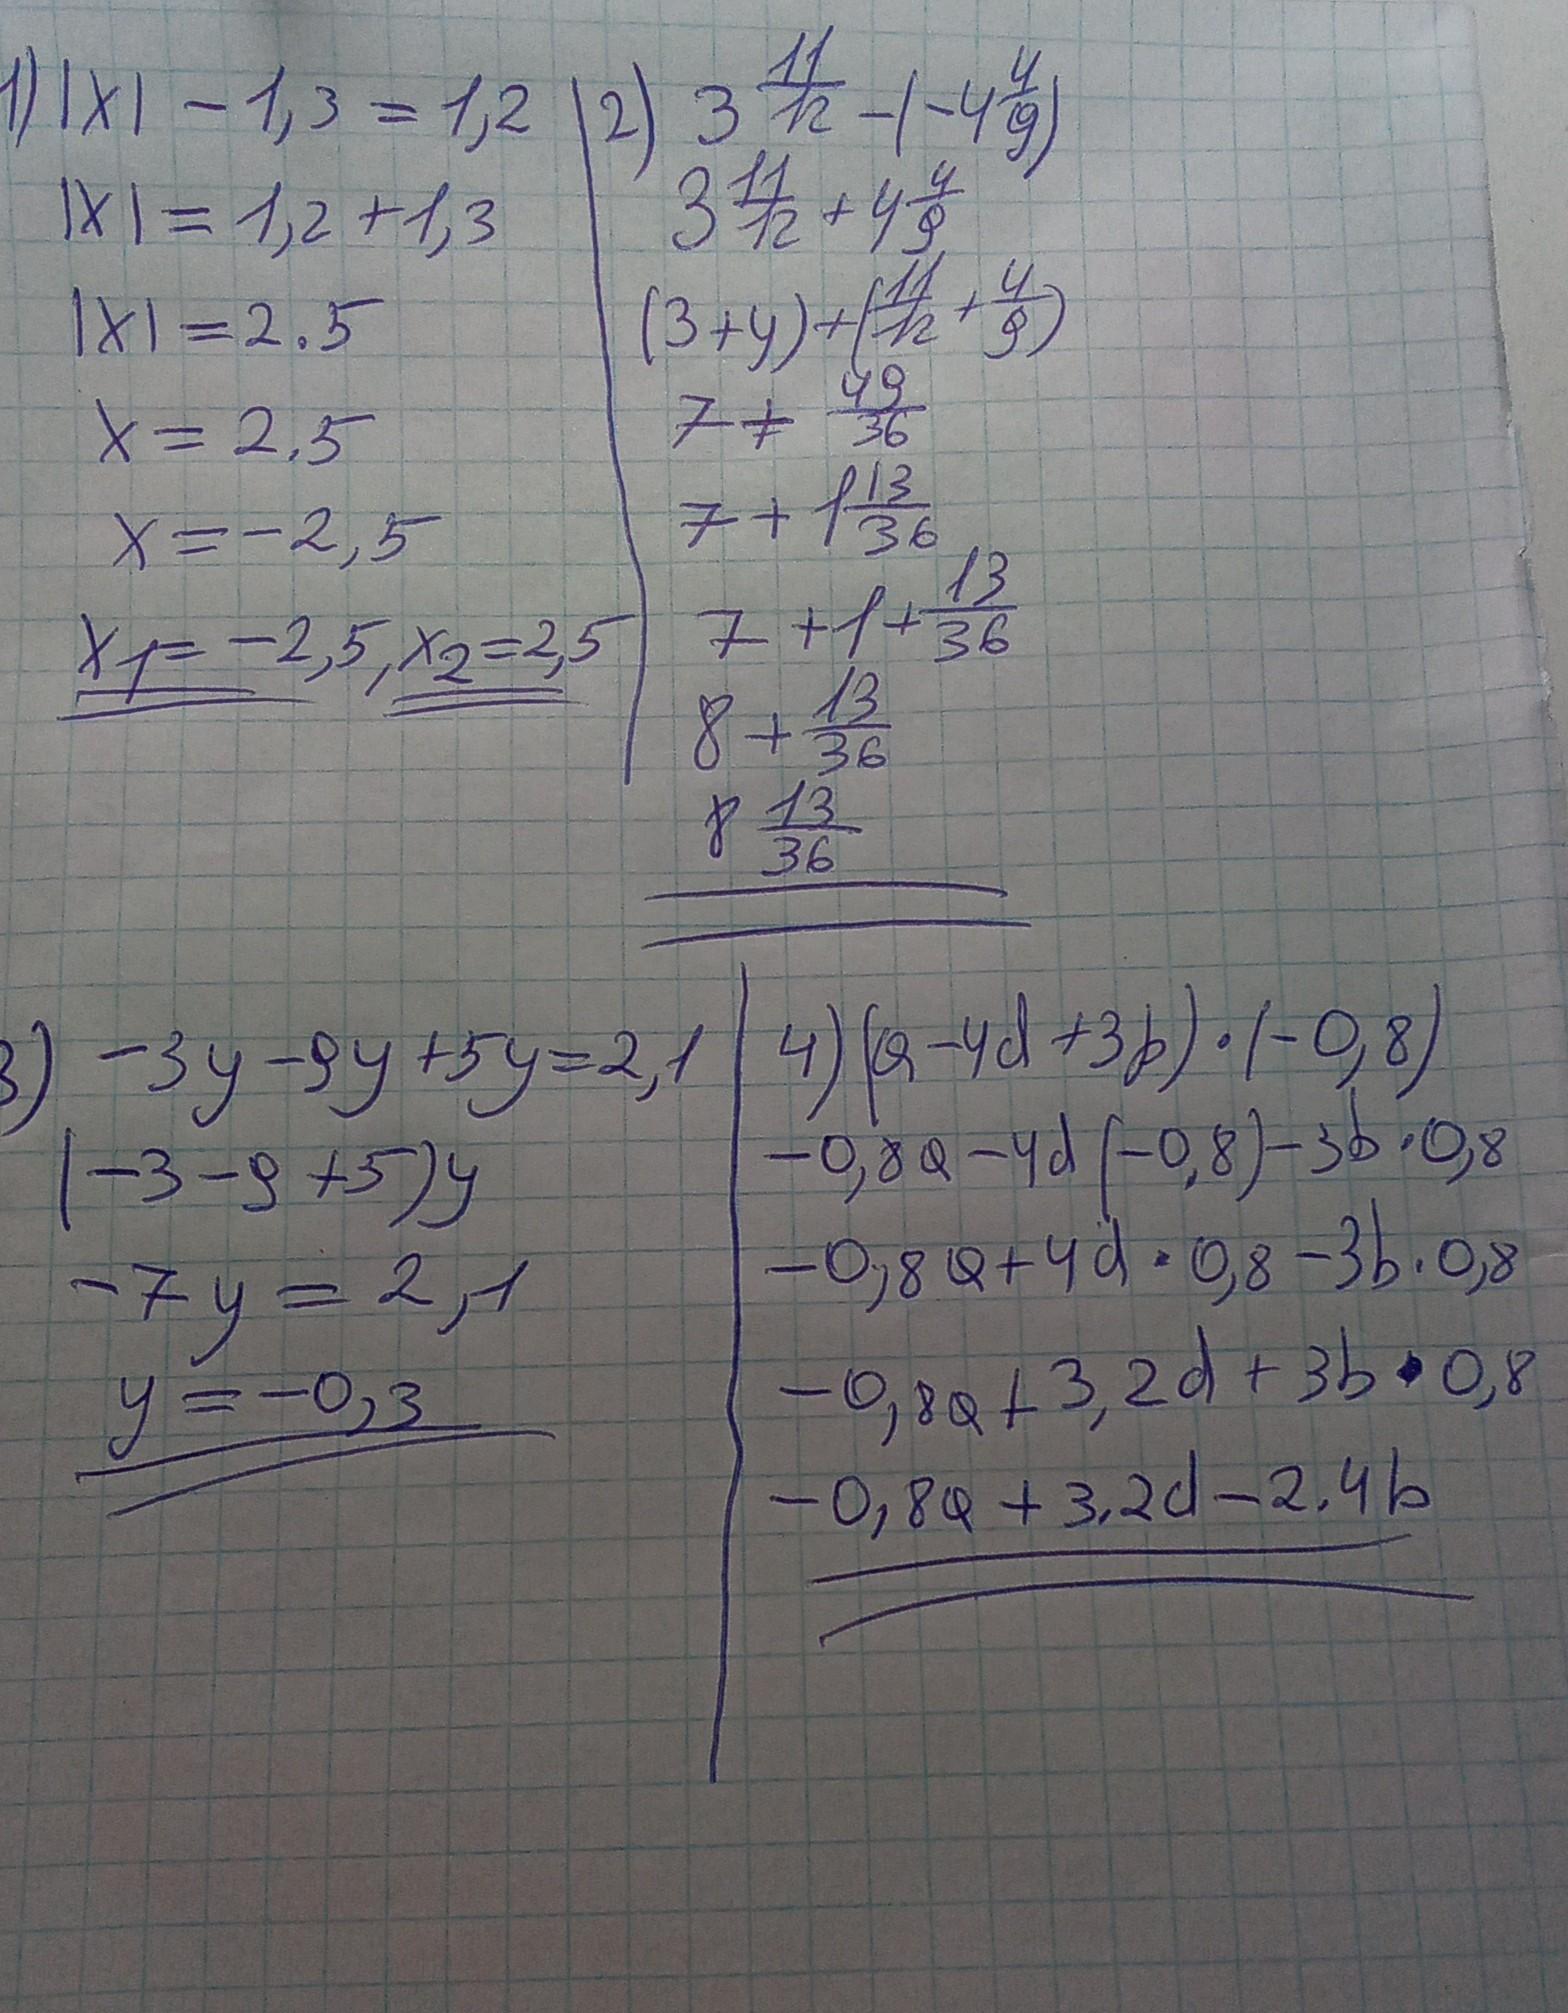 1) |x| - 1,3 = 1,2
|x| = 1,2 + 1,3
|x| = 2.5
x = 2.5
x = -2,5
x₁ = -2,5, x₂ = 2,5
2) 3 11/12 - (-4 4/9)
3 11/12 + 4 4/9
(3+4) + (11/12 + 4/9)
7 + 49/36
7 + 1 13/36
7 + 1 + 13/36
8 + 13/36
8 13/36
3) -3y - 9y + 5y = 2,1
(-3 - 9 + 5)y
-7y = 2,1
y = -0,3
4) (a - 4d + 3b) · (-0,8)
-0,8a - 4d(-0,8) - 3b · 0,8
-0,8a + 4d · 0,8 - 3b · 0,8
-0,8a + 3,2d + 3b · 0,8
-0,8a + 3.2d - 2.4b